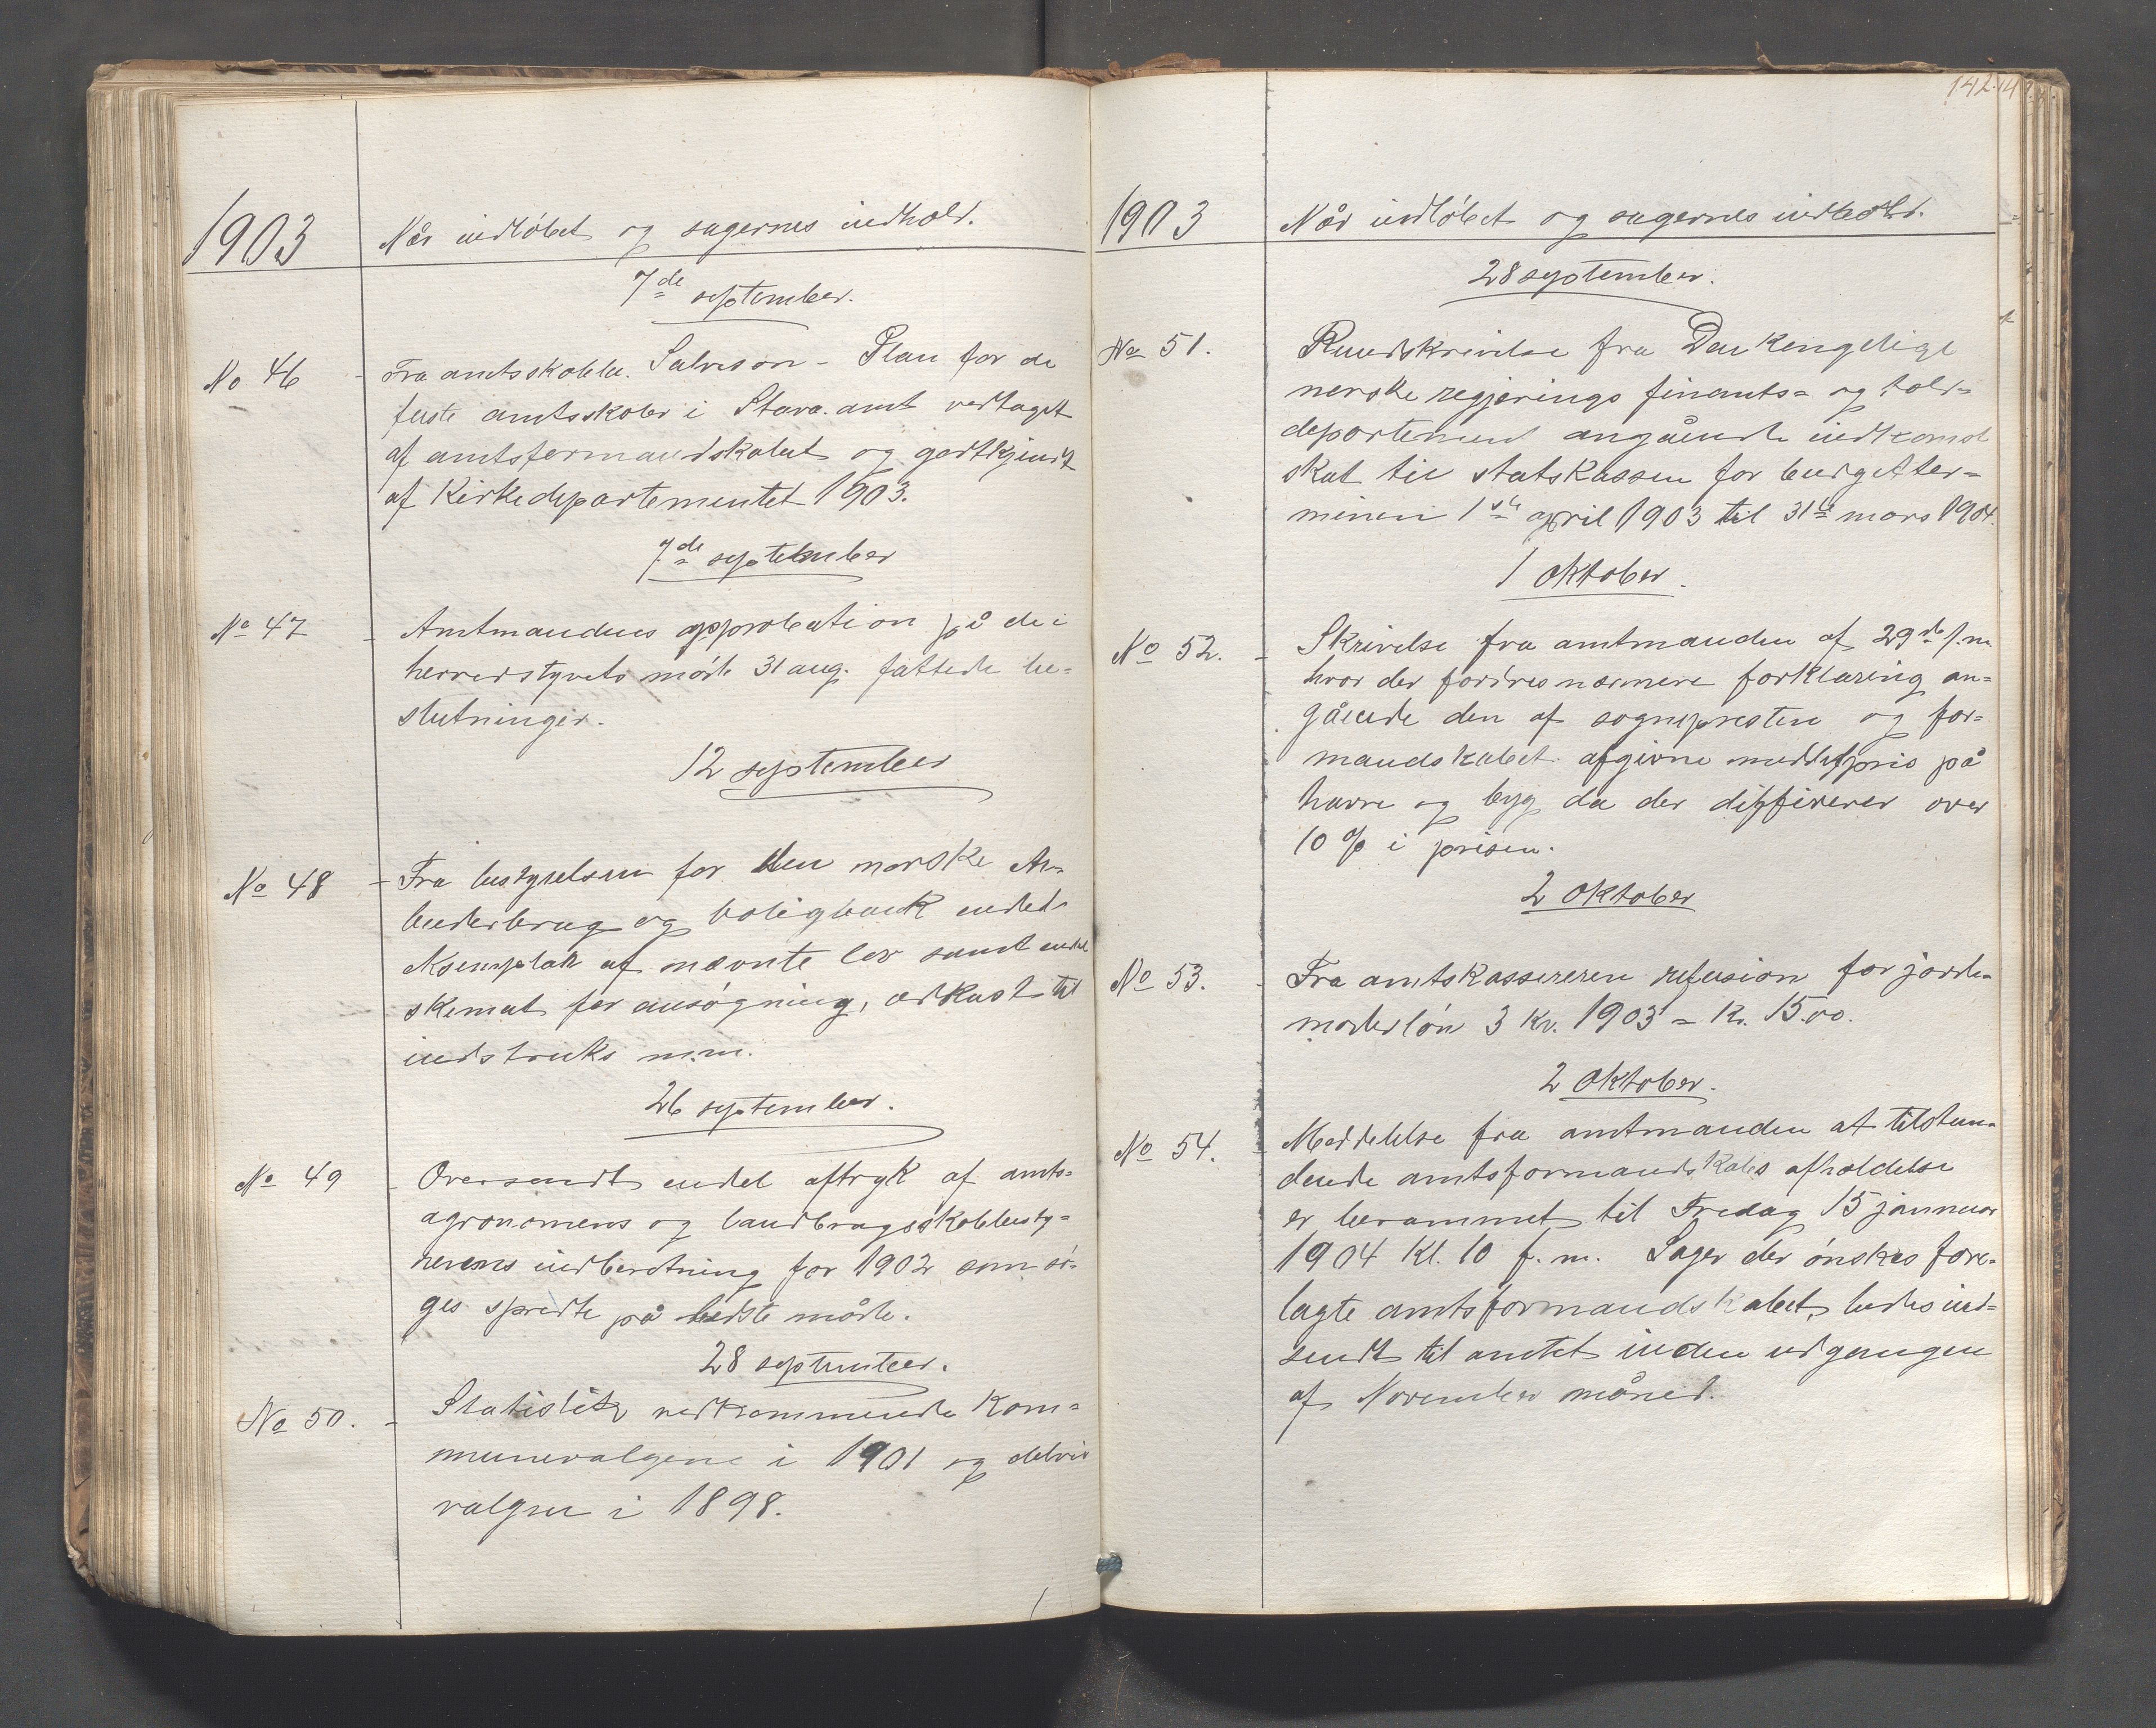 1903
Når indløbet og sagernes indhold.
7de september.
No 46 - Fra amtsskolbe. Salveson - Plan for de
faste amtsskoler i Stava. amt vedtaget
af amtsformandskabet og godtkjendt
af Kirkedepartementet 1903.
7de september
No 47 - Amtmandens approbation på de i
herredstyrets møde 31 aug. fattede be-
slutninger.
12 september
No 48 - Fra bestyrelsen for den norske Ar-
beiderbrug og boligbank endel
eksemplar af nævnte lov samt endel
skemat for ansøgning, udkast til
indstruks m.m.
26 september.
No 49 - Oversendt endel aftryk af amts=
agronomens og landbrugsskolbesty=
rerens indberetning for 1902 som sø-
ges spredte på bedste måde.
28 september.
No 50. - Statistik vedkommende Kom=
munevalgene i 1901 og delvis
valgene i 1898.
142.
1903
Når indløbet og sagernes indhold.
28 september.
No 51. Rundskrivelse fra Den kongelige
norske regjerings finants= og told=
departement angående indkomst
skat til statskassen for budgetter=
minen 1ste april 1903 til 31te mars 1904.
1 Oktober.
No 52. - Skrivelse fra amtmanden af 29de f.m.
hvor der fordres nærmere forklaring an=
gående den af sognepresten og for=
mandskabet afgivne middelpris på
havre og byg da der differerer over
10 % i prisen.
2 Oktober
No 53. - Fra amtskassereren refusion for jorde-
moderløn 3 Kv. 1903 = Kr. 15.00.
2 Oktober.
No 54. - Meddelelse fra amtmanden at tilstun-
dende amtsformandskabs afholdelse
er berammet til Fredag 15 januar
1904 Kl. 10 f. m. Sager der ønskes fore-
lagte amtsformandskabet, bedes ind=
sendt til amtet inden udgangen
af November måned.